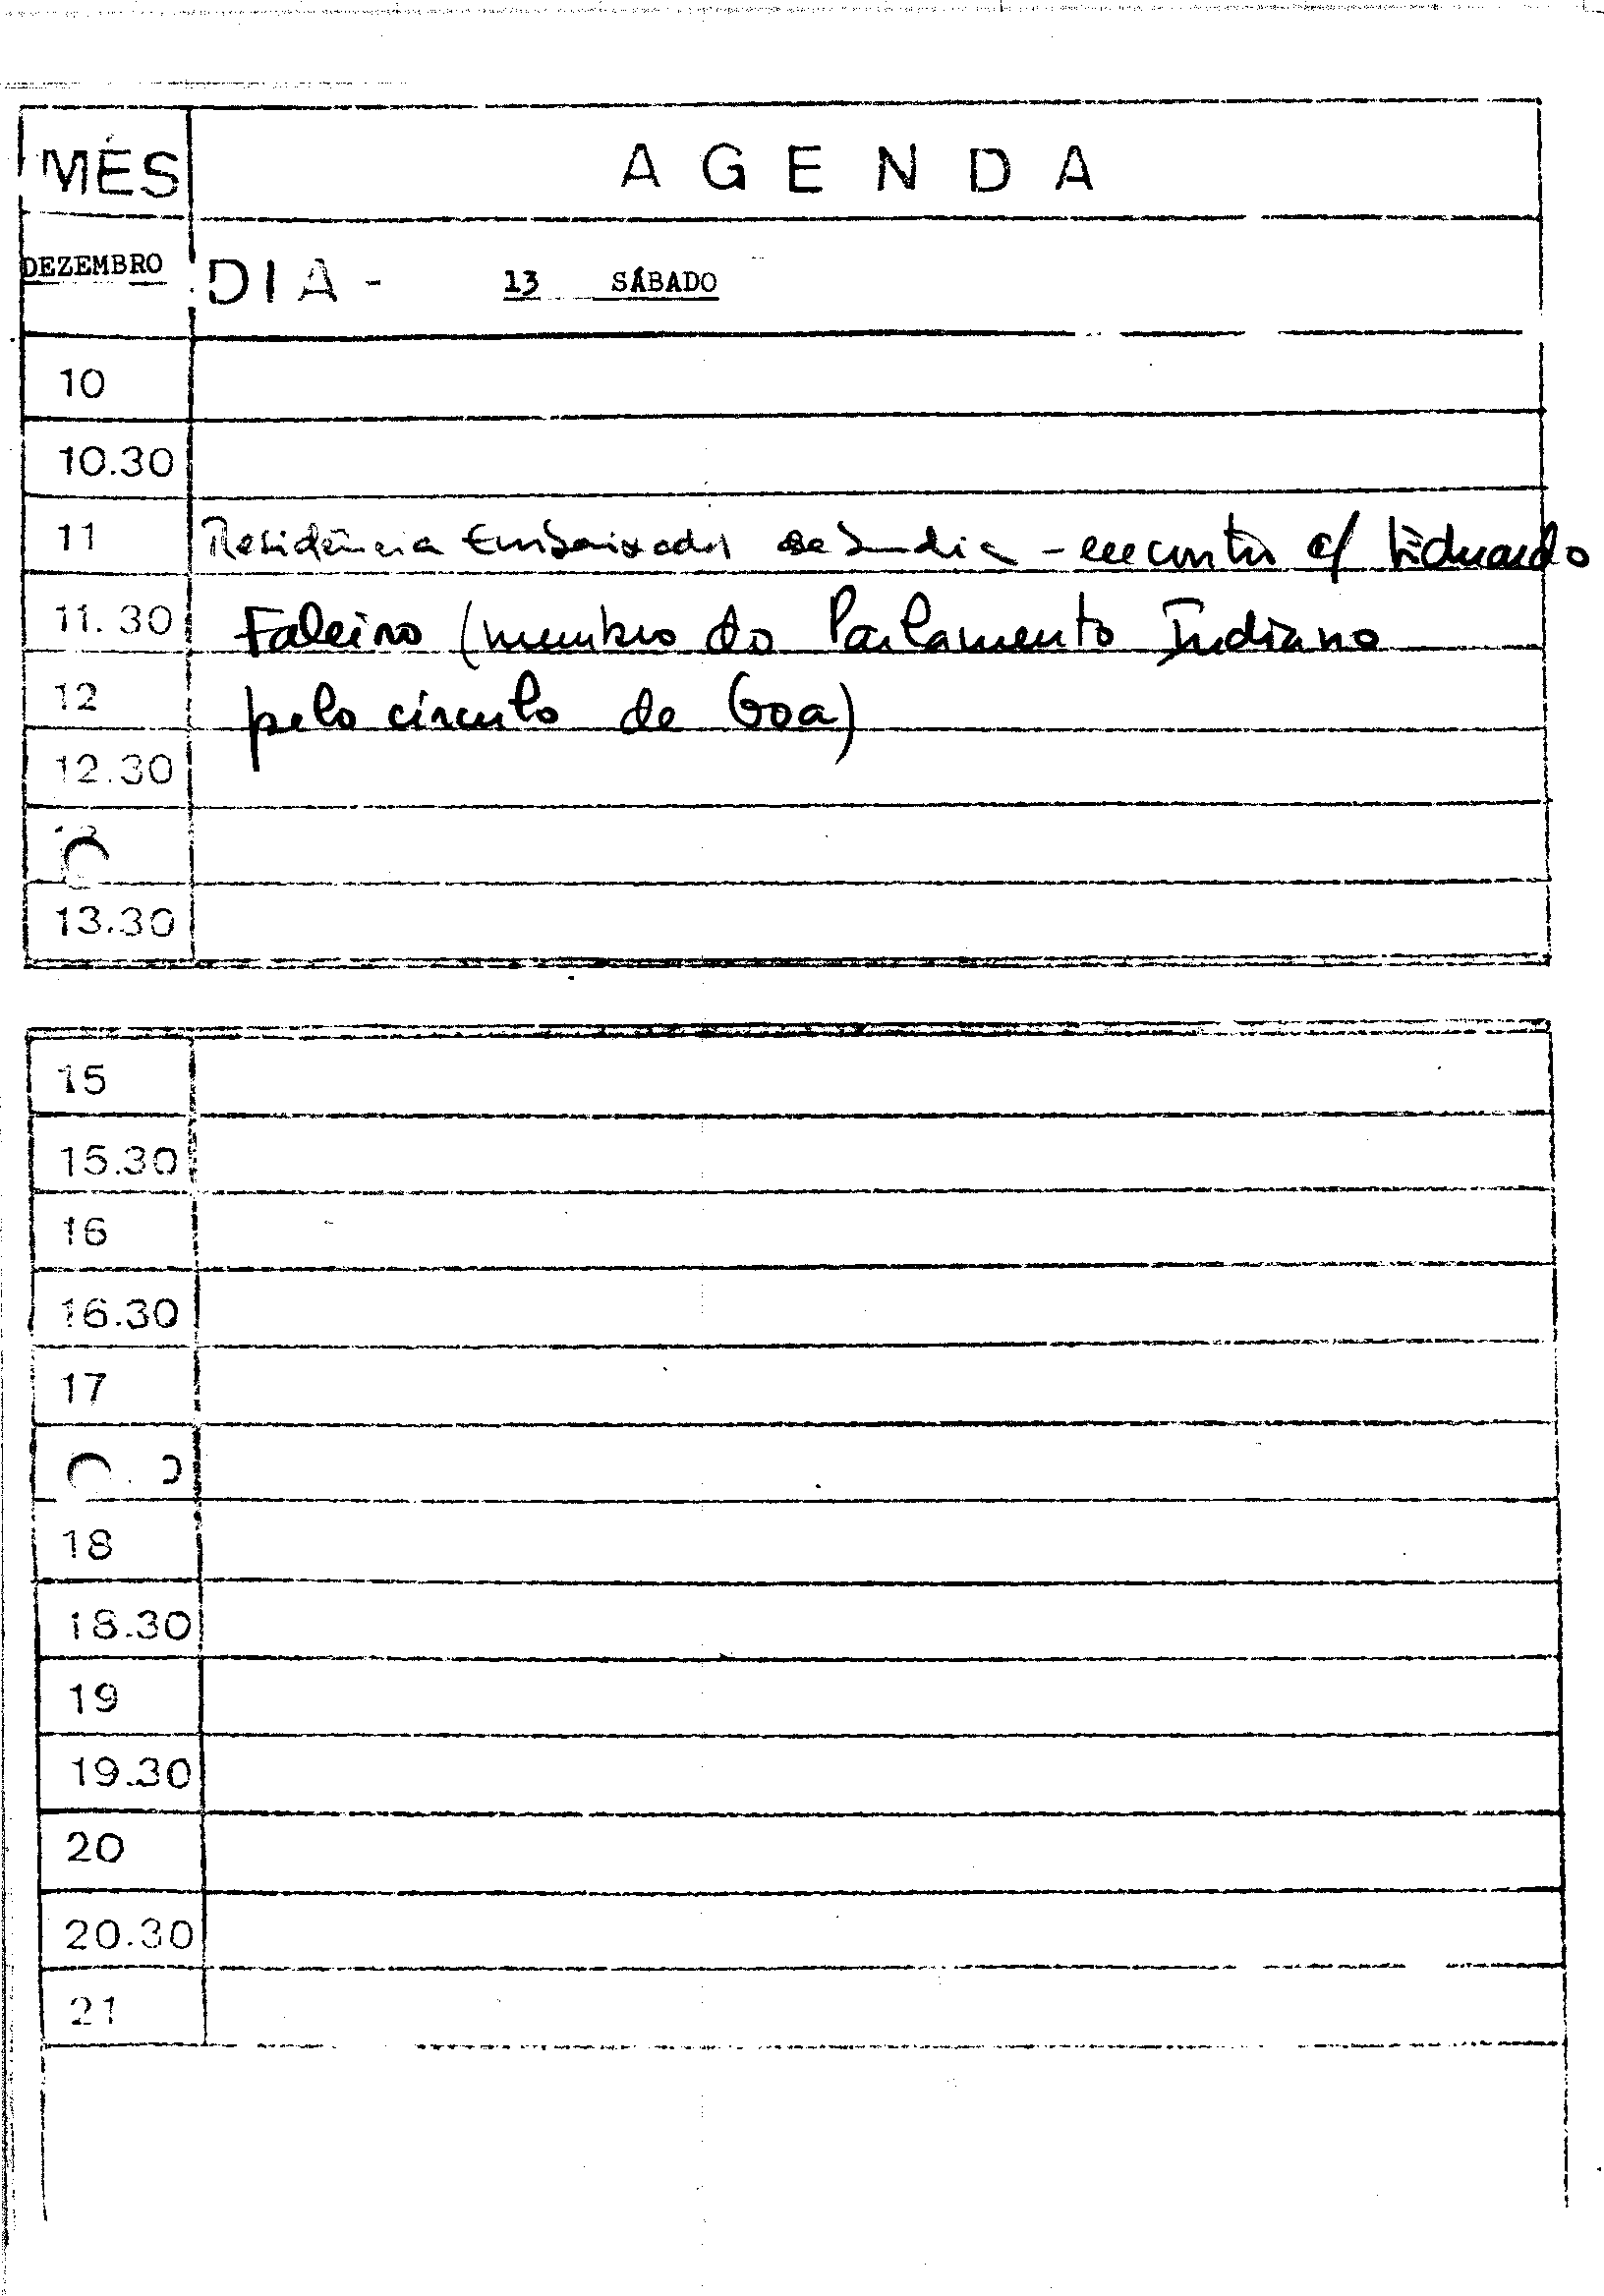 MÊS
A G E N D A
DEZEMBRO
DIA - 13 SÁBADO
10
10.30
11 Residência Embaixador da India - encontro c/ Eduardo
11.30 Faleiro (membro do Parlamento Indiano
12 pelo círculo de Goa)
12.30
13.30
15
15.30
16
16.30
17
18
18.30
19
19.30
20
20.30
21